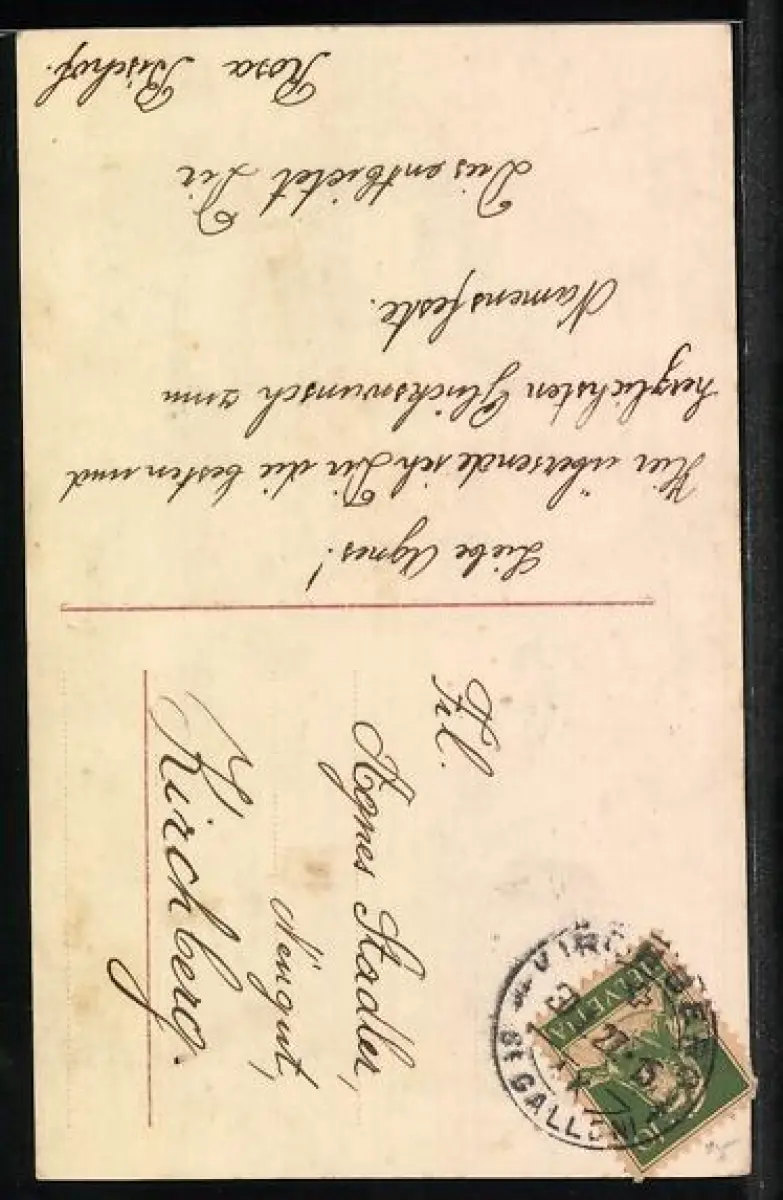 Liebe Agnes!
Hier übersende ich Dir die besten und
herzlichsten Glückswunsch zum
Namensfeste.
Dies entbietet Dir
Rosa Bischof.
Frl.
Agnes Stadler,
Neugut,
Kirchberg.
HELVETIA
10
KIRCHBERG
ST GALLEN